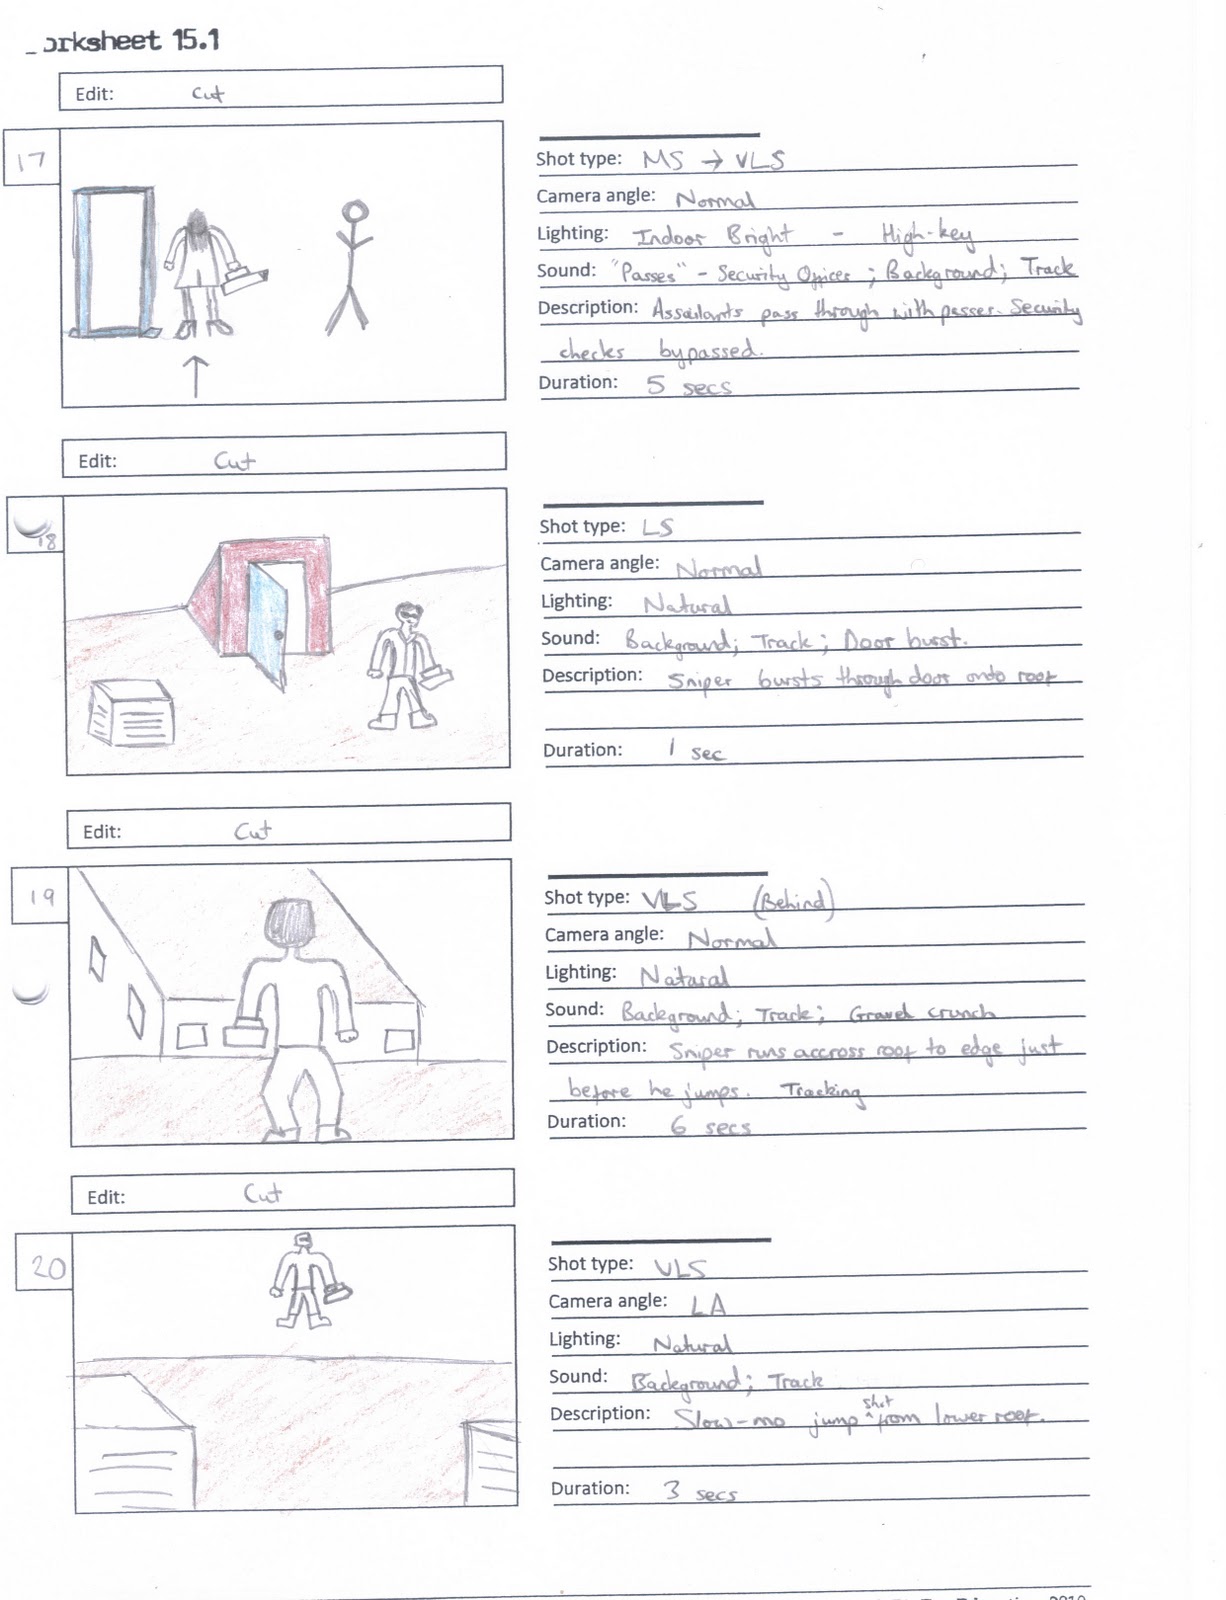 orksheet 15.1
Edit: Cut
17
Shot type: MS → VLS
Camera angle: Normal
Lighting: Indoor Bright - High-key
Sound: "Passes" - Security Officer ; Background; Track
Description: Assailants pass through with passes. Security
checks bypassed.
Duration: 5 secs
Edit: Cut
18
Shot type: LS
Camera angle: Normal
Lighting: Natural
Sound: Background; Track; Door burst.
Description: Sniper bursts through door onto roof
Duration: 1 sec
Edit: Cut
19
Shot type: VLS (Behind)
Camera angle: Normal
Lighting: Natural
Sound: Background; Track; Gravel crunch
Description: Sniper runs accross roof to edge just
before he jumps. Tracking
Duration: 6 secs
Edit: Cut
20
Shot type: VLS
Camera angle: LA
Lighting: Natural
Sound: Background; Track
Description: Slow-mo jump shot from lower roof.
Duration: 3 secs